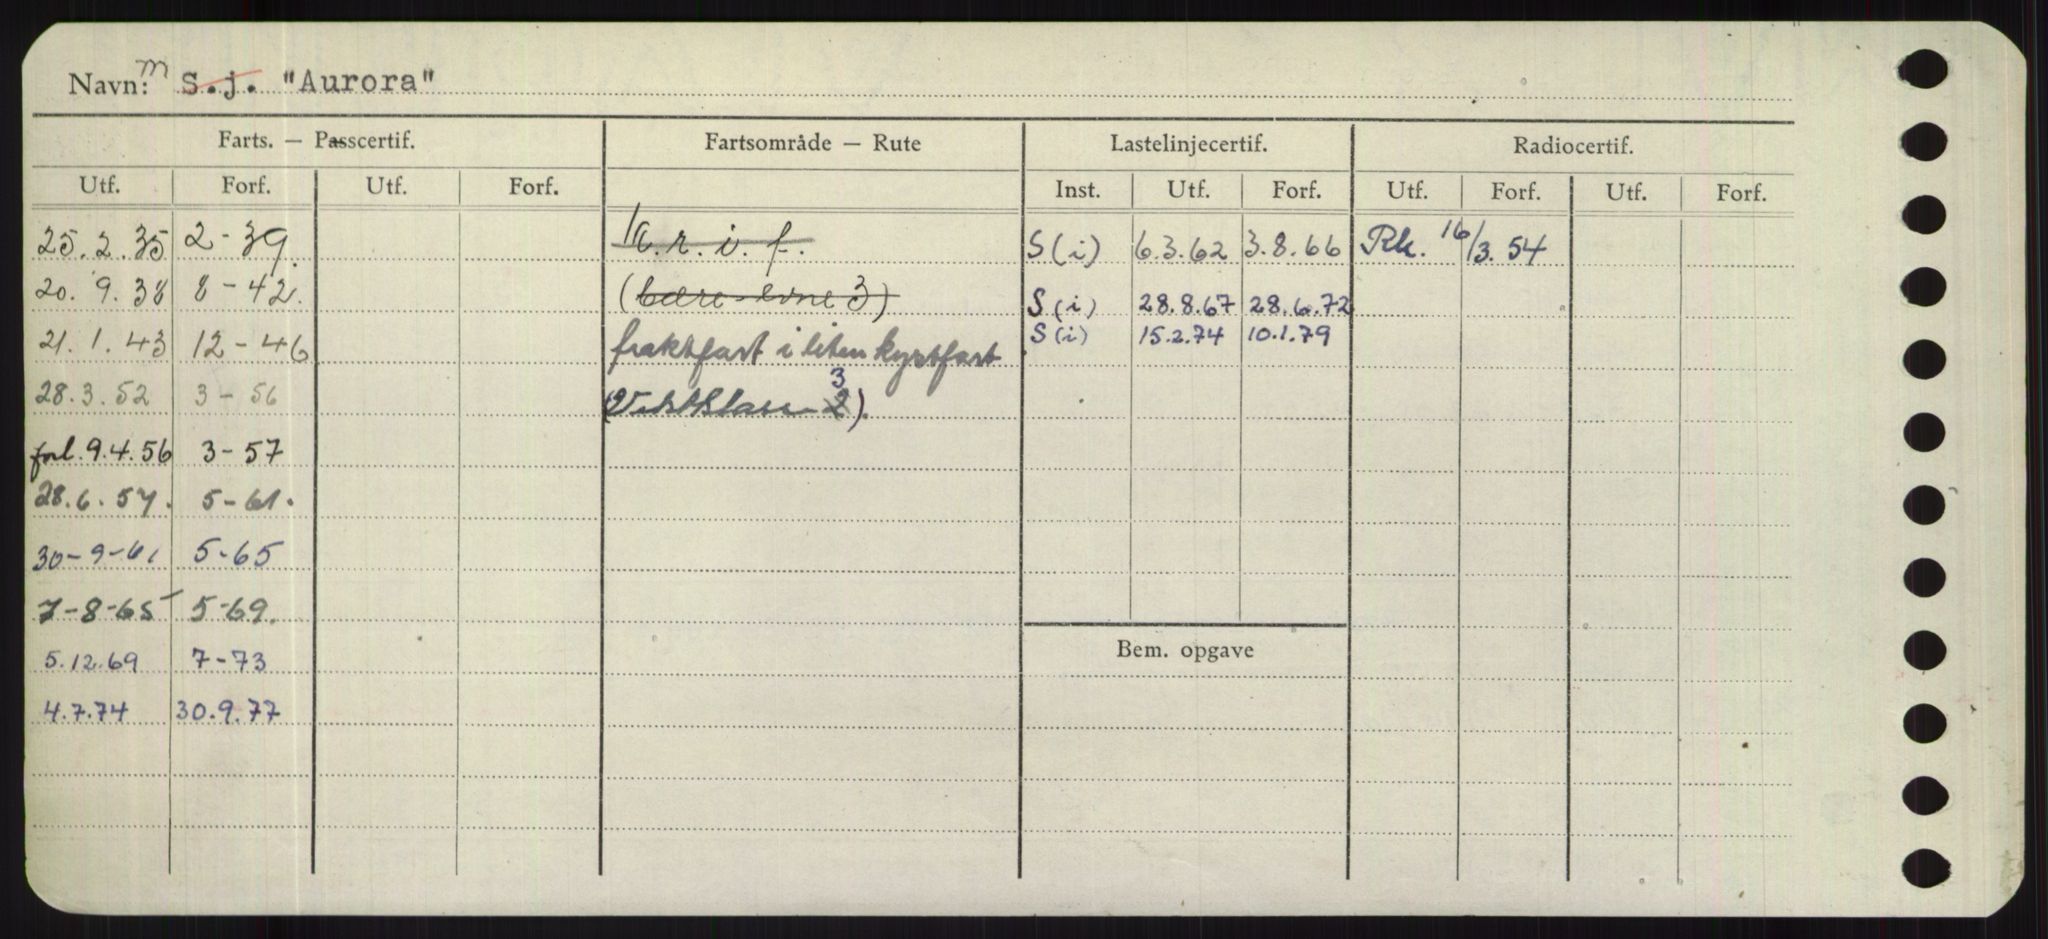 Navn: m S.j. "Aurora"
Farts. — Passcertif. Fartsområde — Rute Lastelinjecertif. Radiocertif.
Utf. Forf. Utf. Forf. Inst. Utf. Forf. Utf. Forf. Utf. Forf.
25.2.35 2-39. k.r.i.f. S(i) 6.3.62 3.8.66 Rk. 16/3.54
20.9.38 8-42. (bære-evne 3) S(i) 28.8.67 28.6.72
21.1.43 12-46 fraktfart i liten kystfart S(i) 15.2.74 10.1.79
28.3.52 3-56 (Vektklasse 2 3).
forl.9.4.56 3-57
28.6.57. 5-61.
30-9-61 5-65
7-8-65 5-69.
Bem. opgave
5.12.69 7-73
4.7.74 30.9.77